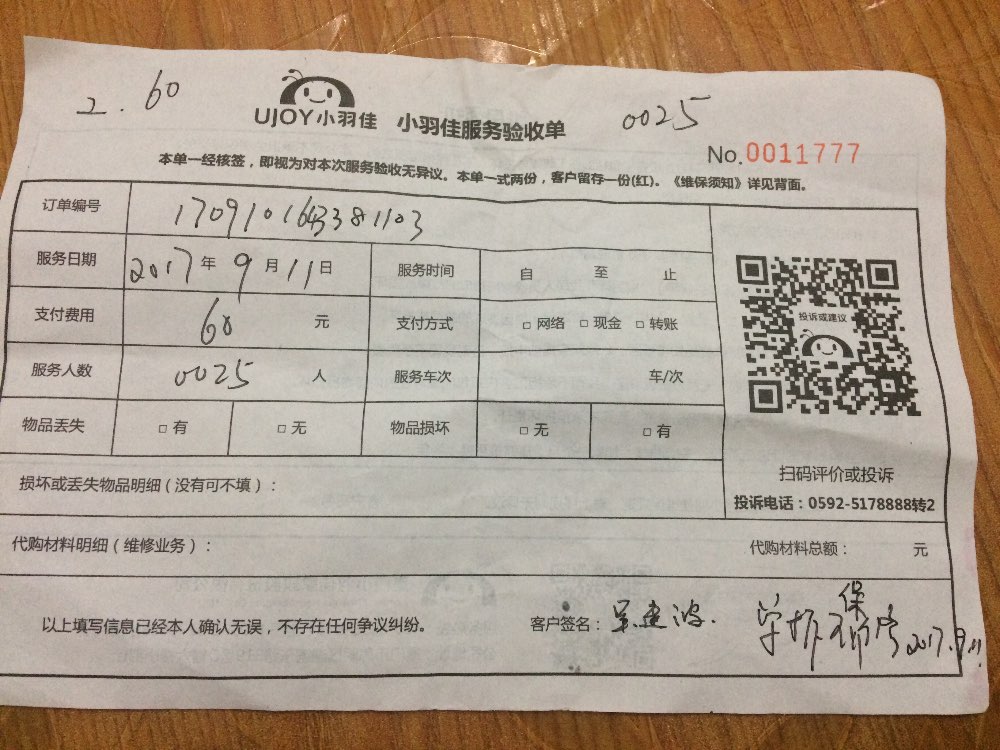 2.60
UJOY小羽佳 小羽佳服务验收单
0025
No.0011777
本单一经核签，即视为对本次服务验收无异议。本单一式两份，客户留存一份(红)。《维保须知》详见背面。
订单编号 170910164381103
服务日期 2017年9月11日 服务时间 自 至 止
支付费用 60 元 支付方式 □网络 □现金 □转账
服务人数 0025 人 服务车次 车/次
物品丢失 □有 □无 物品损坏 □无 □有
投诉或建议
扫码评价或投诉
投诉电话：0592-5178888转2
损坏或丢失物品明细（没有可不填）：
代购材料明细（维修业务）： 代购材料总额： 元
以上填写信息已经本人确认无误，不存在任何争议纠纷。 客户签名： 吴建波.
保
2017.9.11